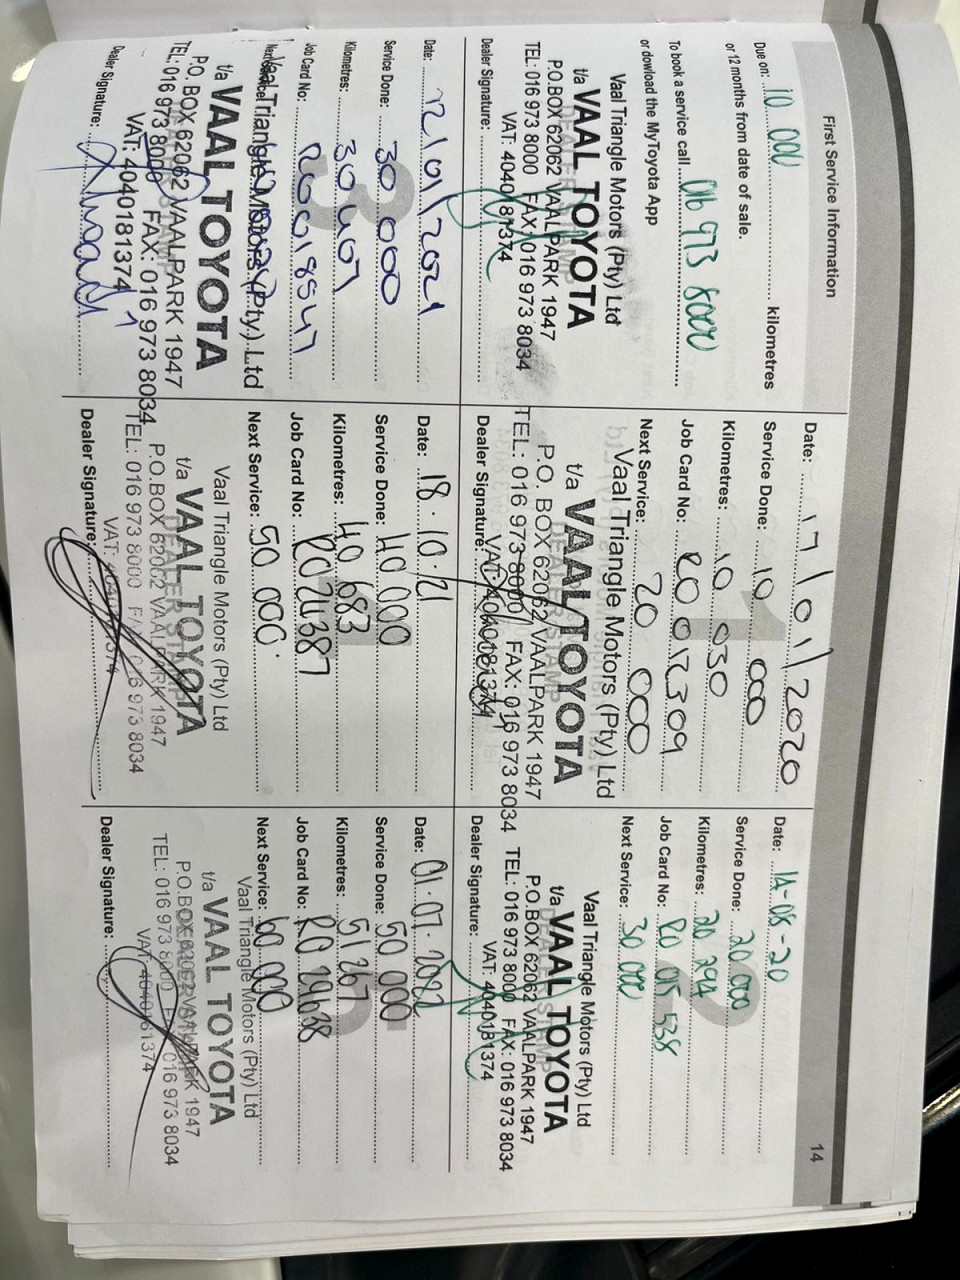 First Service Information
14
Due on: 10 000 kilometres
or 12 months from date of sale.
To book a service call 016 973 8000
or dowload the MyToyota App
Vaal Triangle Motors (Pty) Ltd
t/a VAAL TOYOTA
P.O.BOX 62062 VAALPARK 1947
TEL: 016 973 8000 FAX: 016 973 8034
VAT: 4040181374
Dealer Signature:
1
Date: 17/01/2020
Service Done: 10 000
Kilometres: 10 030
Job Card No: RO 012309
Next Service: 20 000
Vaal Triangle Motors (Pty) Ltd
t/a VAAL TOYOTA
DEALER STAMP
P.O. BOX 62062 VAALPARK 1947
TEL: 016 973 8000 FAX: 016 973 8034
VAT: 4040181374
Dealer Signature:
2
Date: 1A-08-20
Service Done: 20 000
Kilometres: 20 294
Job Card No: RO 015 538
Next Service: 30 000
Vaal Triangle Motors (Pty) Ltd
t/a VAAL TOYOTA
DEALER STAMP
P.O.BOX 62062 VAALPARK 1947
TEL: 016 973 8000 FAX: 016 973 8034
VAT: 4040181374
Dealer Signature:
3
Date: 12/01/2021
Service Done: 30 000
Kilometres: 30 407
Job Card No: RO0018547
Next Service:
Vaal Triangle Motors (Pty.) Ltd
t/a VAAL TOYOTA
P.O. BOX 62062 VAALPARK 1947
TEL: 016 973 8000 FAX: 016 973 8034
VAT: 4040181374
Dealer Signature:
Date: 18.10.21
Service Done: 40 000
Kilometres: 40 683
Job Card No: RO 24387
Next Service: 50 000.
Vaal Triangle Motors (Pty) Ltd
t/a VAAL TOYOTA
DEALER STAMP
P.O.BOX 62062 VAALPARK 1947
TEL: 016 973 8000 FAX: 016 973 8034
VAT: 4040181374
Dealer Signature:
Date: 01.07.2022
Service Done: 50 000
Kilometres: 51 267
Job Card No: RO 29638
Next Service: 60 000
Vaal Triangle Motors (Pty) Ltd
t/a VAAL TOYOTA
P.O.BOX 62062 VAALPARK 1947
TEL: 016 973 8000 FAX: 016 973 8034
VAT: 4040181374
Dealer Signature: